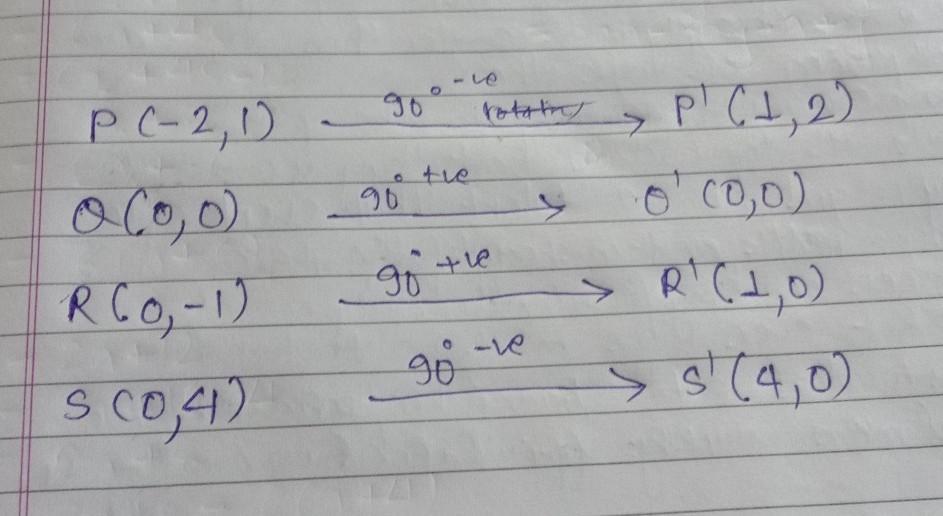 P(-2,1) 90° -ve → P'(1,2)
Q(0,0) 90° +ve → Q'(0,0)
R(0,-1) 90° +ve → R'(1,0)
S(0,4) 90° -ve → S'(4,0)